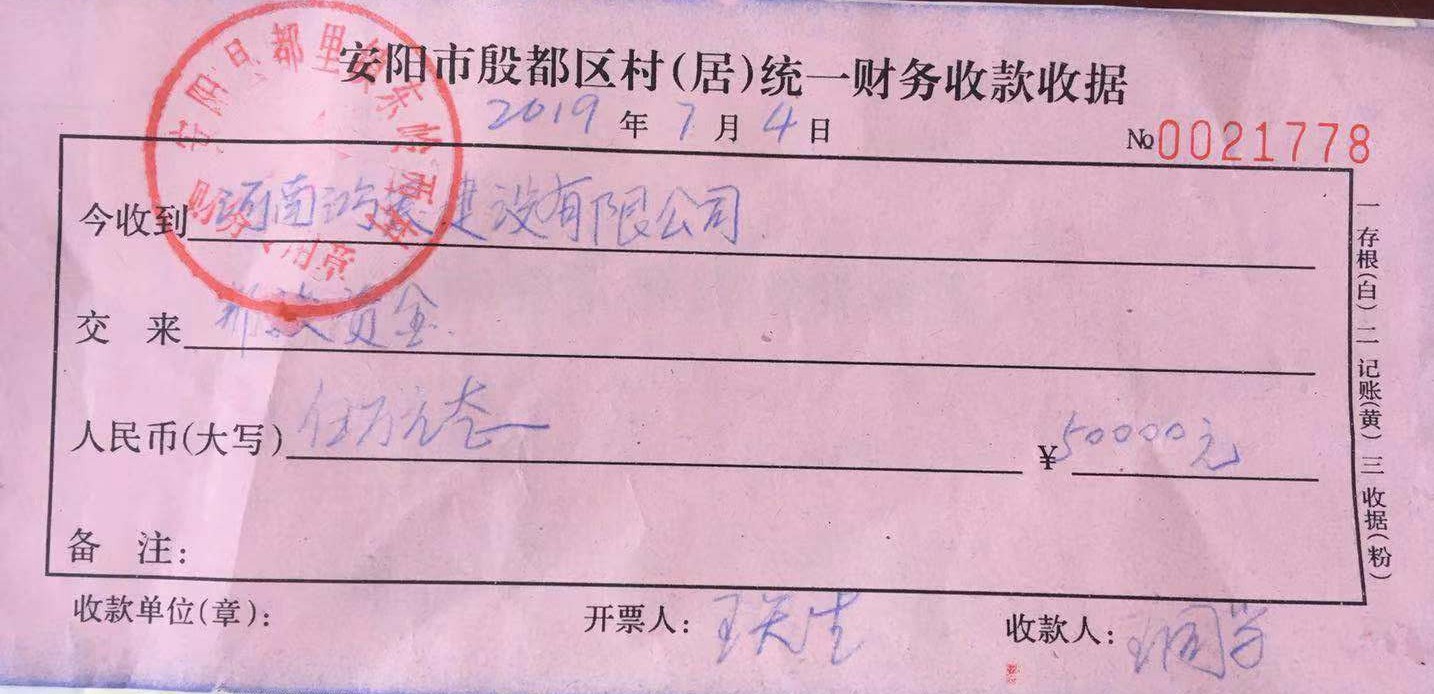 安阳市殷都区村(居)统一财务收款收据
2019年7月4日
№0021778
今收到 河南鸿 建设有限公司
交 来 资金
人民币(大写) 伍万元 ¥50000元
备 注:
收款单位(章): 开票人: 王 生 收款人:
一存根(白)二记账(黄)三收据(粉)
安阳 都里 东 西
财务专用章